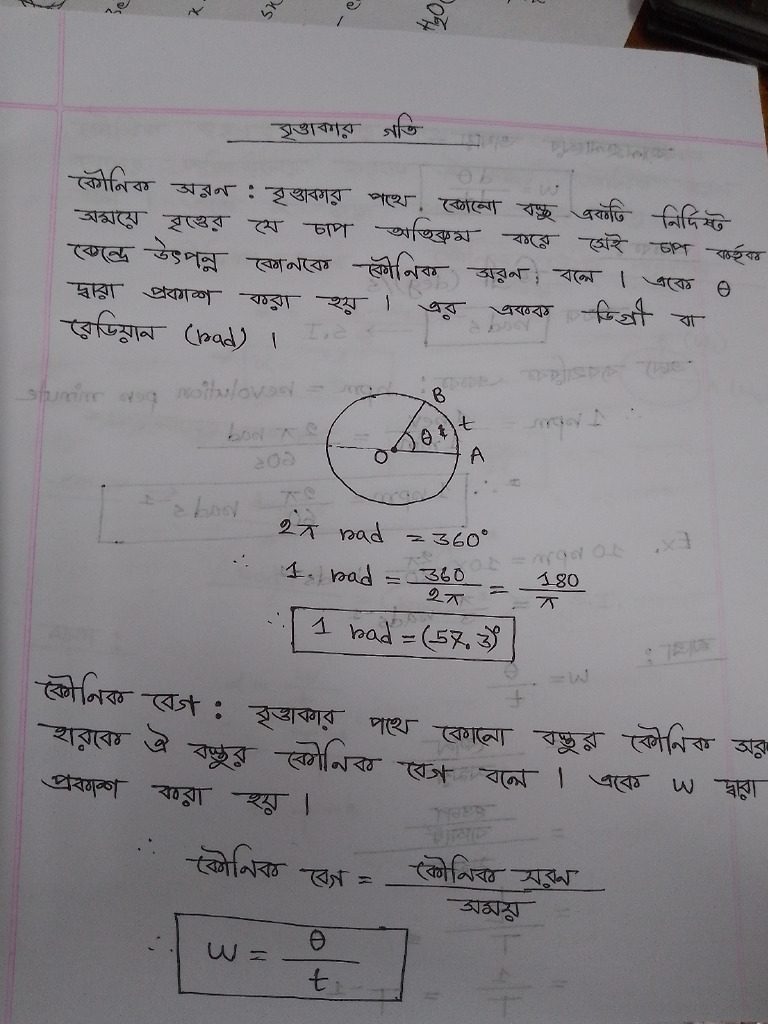 বৃত্তাকার গতি
কৌনিক সরন : বৃত্তাকার পথে কোনো বস্তু একটি নির্দিষ্ট
সময়ে বৃত্তের যে চাপ অতিক্রম করে সেই চাপ কর্তৃক
কেন্দ্রে উৎপন্ন কোনকে কৌনিক সরন বলে । একে θ
দ্বারা প্রকাশ করা হয় । এর একক ডিগ্রী বা
রেডিয়ান (rad) ।
B
θ t
O A
2π rad = 360°
∴ 1 rad = 360/2π = 180/π
∴ 1 rad = (57.3)°
কৌনিক বেগ : বৃত্তাকার পথে কোনো বস্তুর কৌনিক
হারকে ঐ বস্তুর কৌনিক বেগ বলে । একে W দ্বারা
প্রকাশ করা হয় ।
∴ কৌনিক বেগ = কৌনিক সরন / সময়
∴ W = θ/t